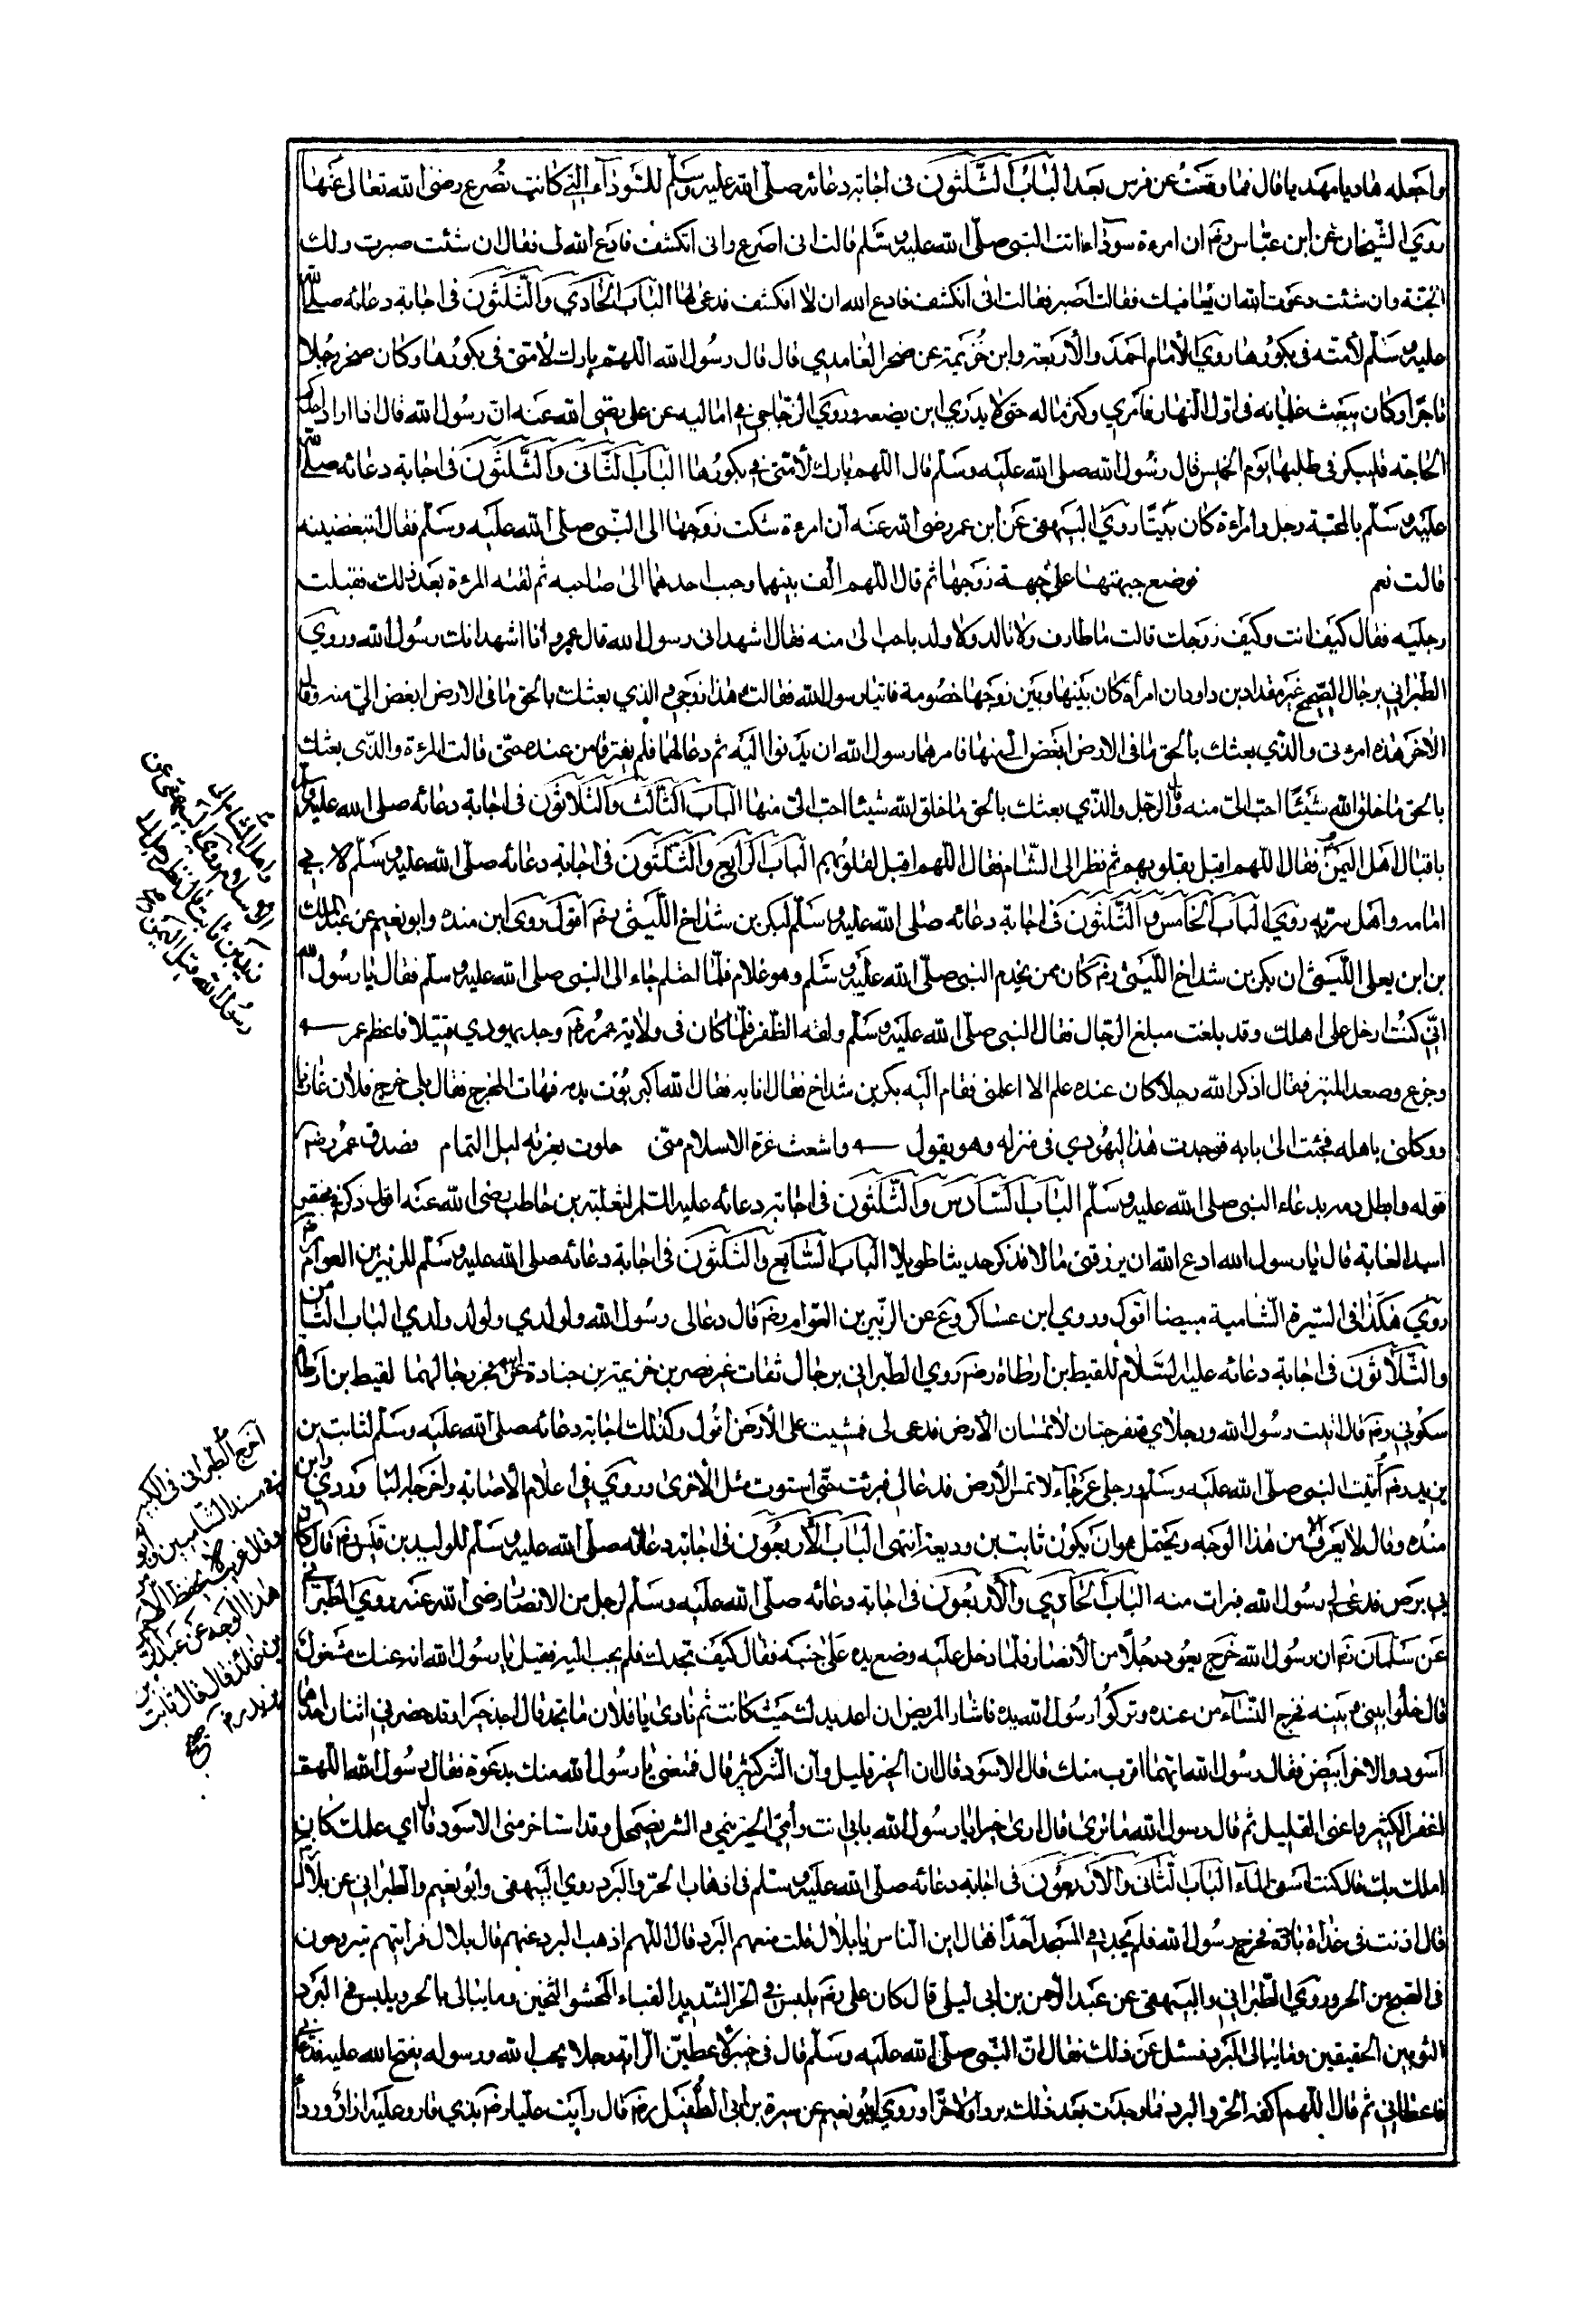 واجعله هاديا مهديا قال فما وقعت عن فرس بعد الباب الثلثون فى اجابة دعائه صلى الله عليه وسلم للسوداء التي كانت تصرع رضى الله تعالى عنها
روى الشيخان عن ابن عباس رضم ان امرءة سوداء اتت النبى صلى الله عليه وسلم قالت انى اصرع وانى اتكشف فادع الله لى فقال ان شئت صبرت ولك
الجنة وان شئت دعوت الله ان يعافيك فقالت اصبر فقالت انى اتكشف فادع الله ان لا اتكشف فدعى لها الباب الحادى والثلثون فى اجابة دعائه صلى الله
عليه وسلم لأمته فى بكورها روى الأمام احمد والأربعة وابن خزيمة عن صخر الغامدي قال قال رسول الله اللهم بارك لأمتى فى بكورها وكان صخر رجلا
تاجرا وكان يبعث غلمانه فى اول النهار فاثري وكثر ماله حتى لا يدري اين يضعه وروى الزجاجي فى اماليه عن على رضى الله عنه ان رسول الله قال اذا اراد احدكم
الحاجة فليبكر فى طلبها يوم الخميس قال رسول الله صلى الله عليه وسلم قال اللهم بارك لأمتى فى بكورها الباب الثانى والثلثون فى اجابة دعائه صلى الله
عليه وسلم بالمحبة رجل وامراءة كان بيتا روى البيهقى عن ابن عمر رضى الله عنه ان امرءة شكت زوجها الى النبى صلى الله عليه وسلم فقال اتبغضينه
قالت نعم فوضع جبهتها على جبهة زوجها ثم قال اللهم الف بينهما وحبب احدهما الى صاحبه ثم لقته المرءة بعد ذلك فقبلت
رجليه فقال كيف انت وكيف زوجك قالت ما طارف ولا تالد ولا ولد باحب الى منه فقال اشهد انى رسول الله قال عمر وانا اشهد انك رسول الله وروي
الطبرانى برجال الصحيح غير مقداد بن داود ان امرأة كان بينها وبين زوجها خصومة فاتيا رسول الله فقالت هذا زوجى والذي بعثك بالحق ما فى الارض ابغض الي منه وقال
الاخر هذه امرءتى والذي بعثك بالحق ما فى الارض ابغض الى منها فامرهما رسول الله ان يدنوا اليه ثم دعا لهما فلم يفترقا من عنده حتى قالت المرءة والذى بعثك
بالحق ما خلق الله شيئا احب الى منه وقال الرجل والذي بعثك بالحق ما خلق الله شيئا احب الى منها الباب الثالث والثلاثون فى اجابة دعائه صلى الله عليه وسلم
باقبال اهل اليمن فقال اللهم اقبل بقلوبهم ثم نظر الى الشام فقال اللهم اقبل بقلوبهم الباب الرابع والثلثون فى اجابة دعائه صلى الله عليه وسلم لابى
امامه واهل سريه روي الباب الخامس والثلثون فى اجابة دعائه صلى الله عليه وسلم لبكر بن شداخ الليثى رضم اقول روى ابن منده وابو نعيم عن عبد الملك
بن ابن يعلى الليثى ان بكر بن شداخ الليثى رضم كان ممن يخدم النبى صلى الله عليه وسلم وهو غلام فلما احتلم جاء الى النبى صلى الله عليه وسلم فقال يا رسول الله
انى كنت ادخل على اهلك وقد بلغت مبلغ الرجال فقال النبى صلى الله عليه وسلم ولقه الظفر فلما كان فى ولاية عمر رضم وجد يهودي قتيلا فاعظم عمر
وجزع وصعد المنبر فقال اذكر الله رجلا كان عنده علم الا اعلمنى فقام اليه بكر بن شداخ فقال انا به فقال الله اكبر بؤت بدمه فهات المخرج فقال بلى خرج فلان غازيا
ووكلنى باهله فجئت الى بابه فوجدت هذا اليهودي فى منزله وهو يقول واشعث غرة الاسلام منى خلوت بعرسه ليل التمام فصدق عمر رضم
قوله وابطل دمه بدعاء النبى صلى الله عليه وسلم الباب السادس والثلثون فى اجابة دعائه عليه السلم لثعلبة بن حاطب رضى الله عنه اقول ذكر فى مختصر
اسد الغابة قال يا رسول الله ادع الله ان يرزقنى مالا فذكر حديثا طويلا الباب السابع والثلثون فى اجابة دعائه صلى الله عليه وسلم للزبير بن العوام رضم
روي هكذا فى السيرة الشامية مبيضا اقول وروي ابن عساكر عن الزبير بن العوام رضم قال دعا لى رسول الله ولولدي ولولد ولدي الباب الثامن
والثلاثون فى اجابة دعائه عليه السلام للقيط بن ارطاة رضم روي الطبرانى برجال ثقات غير نصر بن خزيمة بن جنادة لقيط بن ارطاة
سكونى رضم قال اتيت رسول الله ورجلاي متفرجتان لا تمسان الأرض فدعى لى فمشيت على الأرض اقول وكذلك اجابة دعائه صلى الله عليه وسلم لثابت بن
يزيد رضم اتيت النبى صلى الله عليه وسلم ورجلى عرجاء لا تمس الأرض فدعا لى فبرئت حتى استوت مثل الأخرى وروي فى اعلام الاصابة وروى ابن
منده وقال لا يعرف من هذا الوجه ويحتمل ان يكون ثابت بن وديعة انتهى الباب الأربعون فى اجابة دعائه صلى الله عليه وسلم للوليد بن قيس رضم قال كان
بى برص فدعى لى رسول الله فبرات منه الباب الحادي والأربعون فى اجابة دعائه صلى الله عليه وسلم لرجل من الانصار رضى الله عنه روي الطبرانى
عن سلمان رضم ان رسول الله خرج يعود رجلا من الأنصار فلما دخل عليه وضع يده على جبينه فقال كيف تجدك فلم يجب اليه فقيل يا رسول الله انه عنك مشغول
قال خلوا بينى وبينه فخرج النساء من عنده وتركوا رسول الله يده فاشار المريض ان اعد يدك حيث كانت ثم نادى يا فلان ما تجد قال اجد خيرا وقد حضرنى اثنان احدهما
اسود والاخر ابيض فقال رسول الله ايهما اقرب منك قال الاسود قال ان الخير قليل وان الشر كثير قال فمتعنى يا رسول الله منك بدعوة فقال رسول الله اللهم
اغفر الكثير واغنى القليل ثم قال رسول الله ما ترى قال ارى خيرا يا رسول الله بابى انت وأمى الخير ينمى والشر يضمحل وقد استاخر منى الاسود قال اي عملك كان
املك بك قال كنت اسقى الماء الباب الثانى والاربعون فى اجابة دعائه صلى الله عليه وسلم فى اذهاب الحر والبرد روي البيهقى وابو نعيم والطبرانى عن بلال
قال اذنت فى غداة باردة فخرج رسول الله فلم يجد فى المسجد احدا فقال اين الناس يا بلال قلت منعهم البرد قال اللهم اذهب البرد عنهم قال بلال فرأيتهم يتروحون
فى الصبح من الحر وروي الطبرانى والبيهقى عن عبد الرحمن بن ابى ليلى قال كان على رضم يلبس فى الحر الشديد القباء المحشو الثخين وما يبالى بالحر ويلبس فى البرد
الثوبين الخفيفين وما يبالى البرد فسئل عن ذلك فقال ان النبى صلى الله عليه وسلم قال فى خيبر لا عطين الراية رجلا يحب الله ورسوله يفتح الله عليه فدعانى
فاعطانى ثم قال اللهم اكفه الحر والبرد فما وجدت بعد ذلك بردا ولا حرا وروي ابو نعيم عن سبرة بن ابى الطفيل رضم قال رأيت عليا رضم بذي قار وعليه ازار ورداء
واهل الشام الى
الاسلام روى البيهقى عن
زيد بن ثابت قال نظر
رسول الله قبل اليمن
اخرج الطبرانى فى الكبير
فى مسند الشاميين وابو
وقال غريب لا يحفظ الا من
هذا الوجه عن عبد
بن عائذ قال قال ثابت بن
يزيد رضم صح